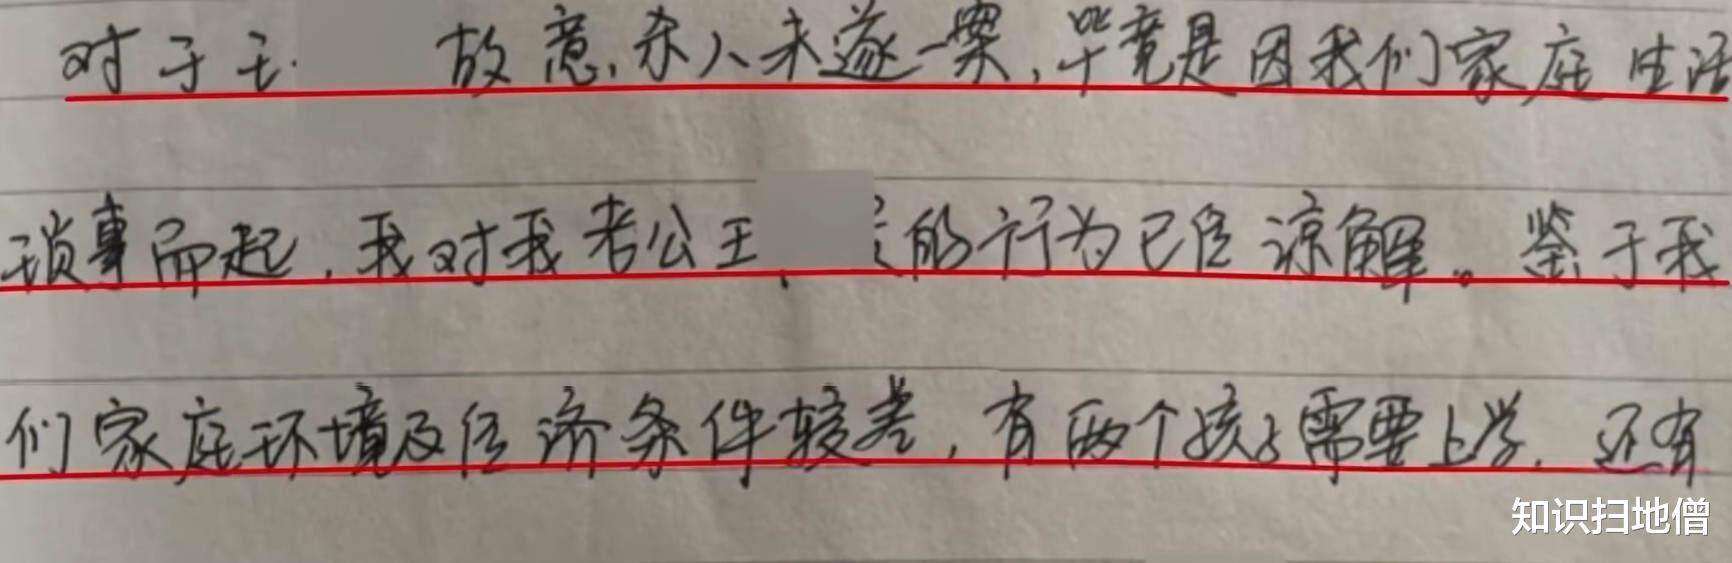 对于王 故意杀人未遂一案,毕竟是因我们家庭生活
琐事而起,我对我老公王 的行为已经谅解。鉴于我
们家庭环境及经济条件较差,有两个孩子需要上学.还有
知识扫地僧